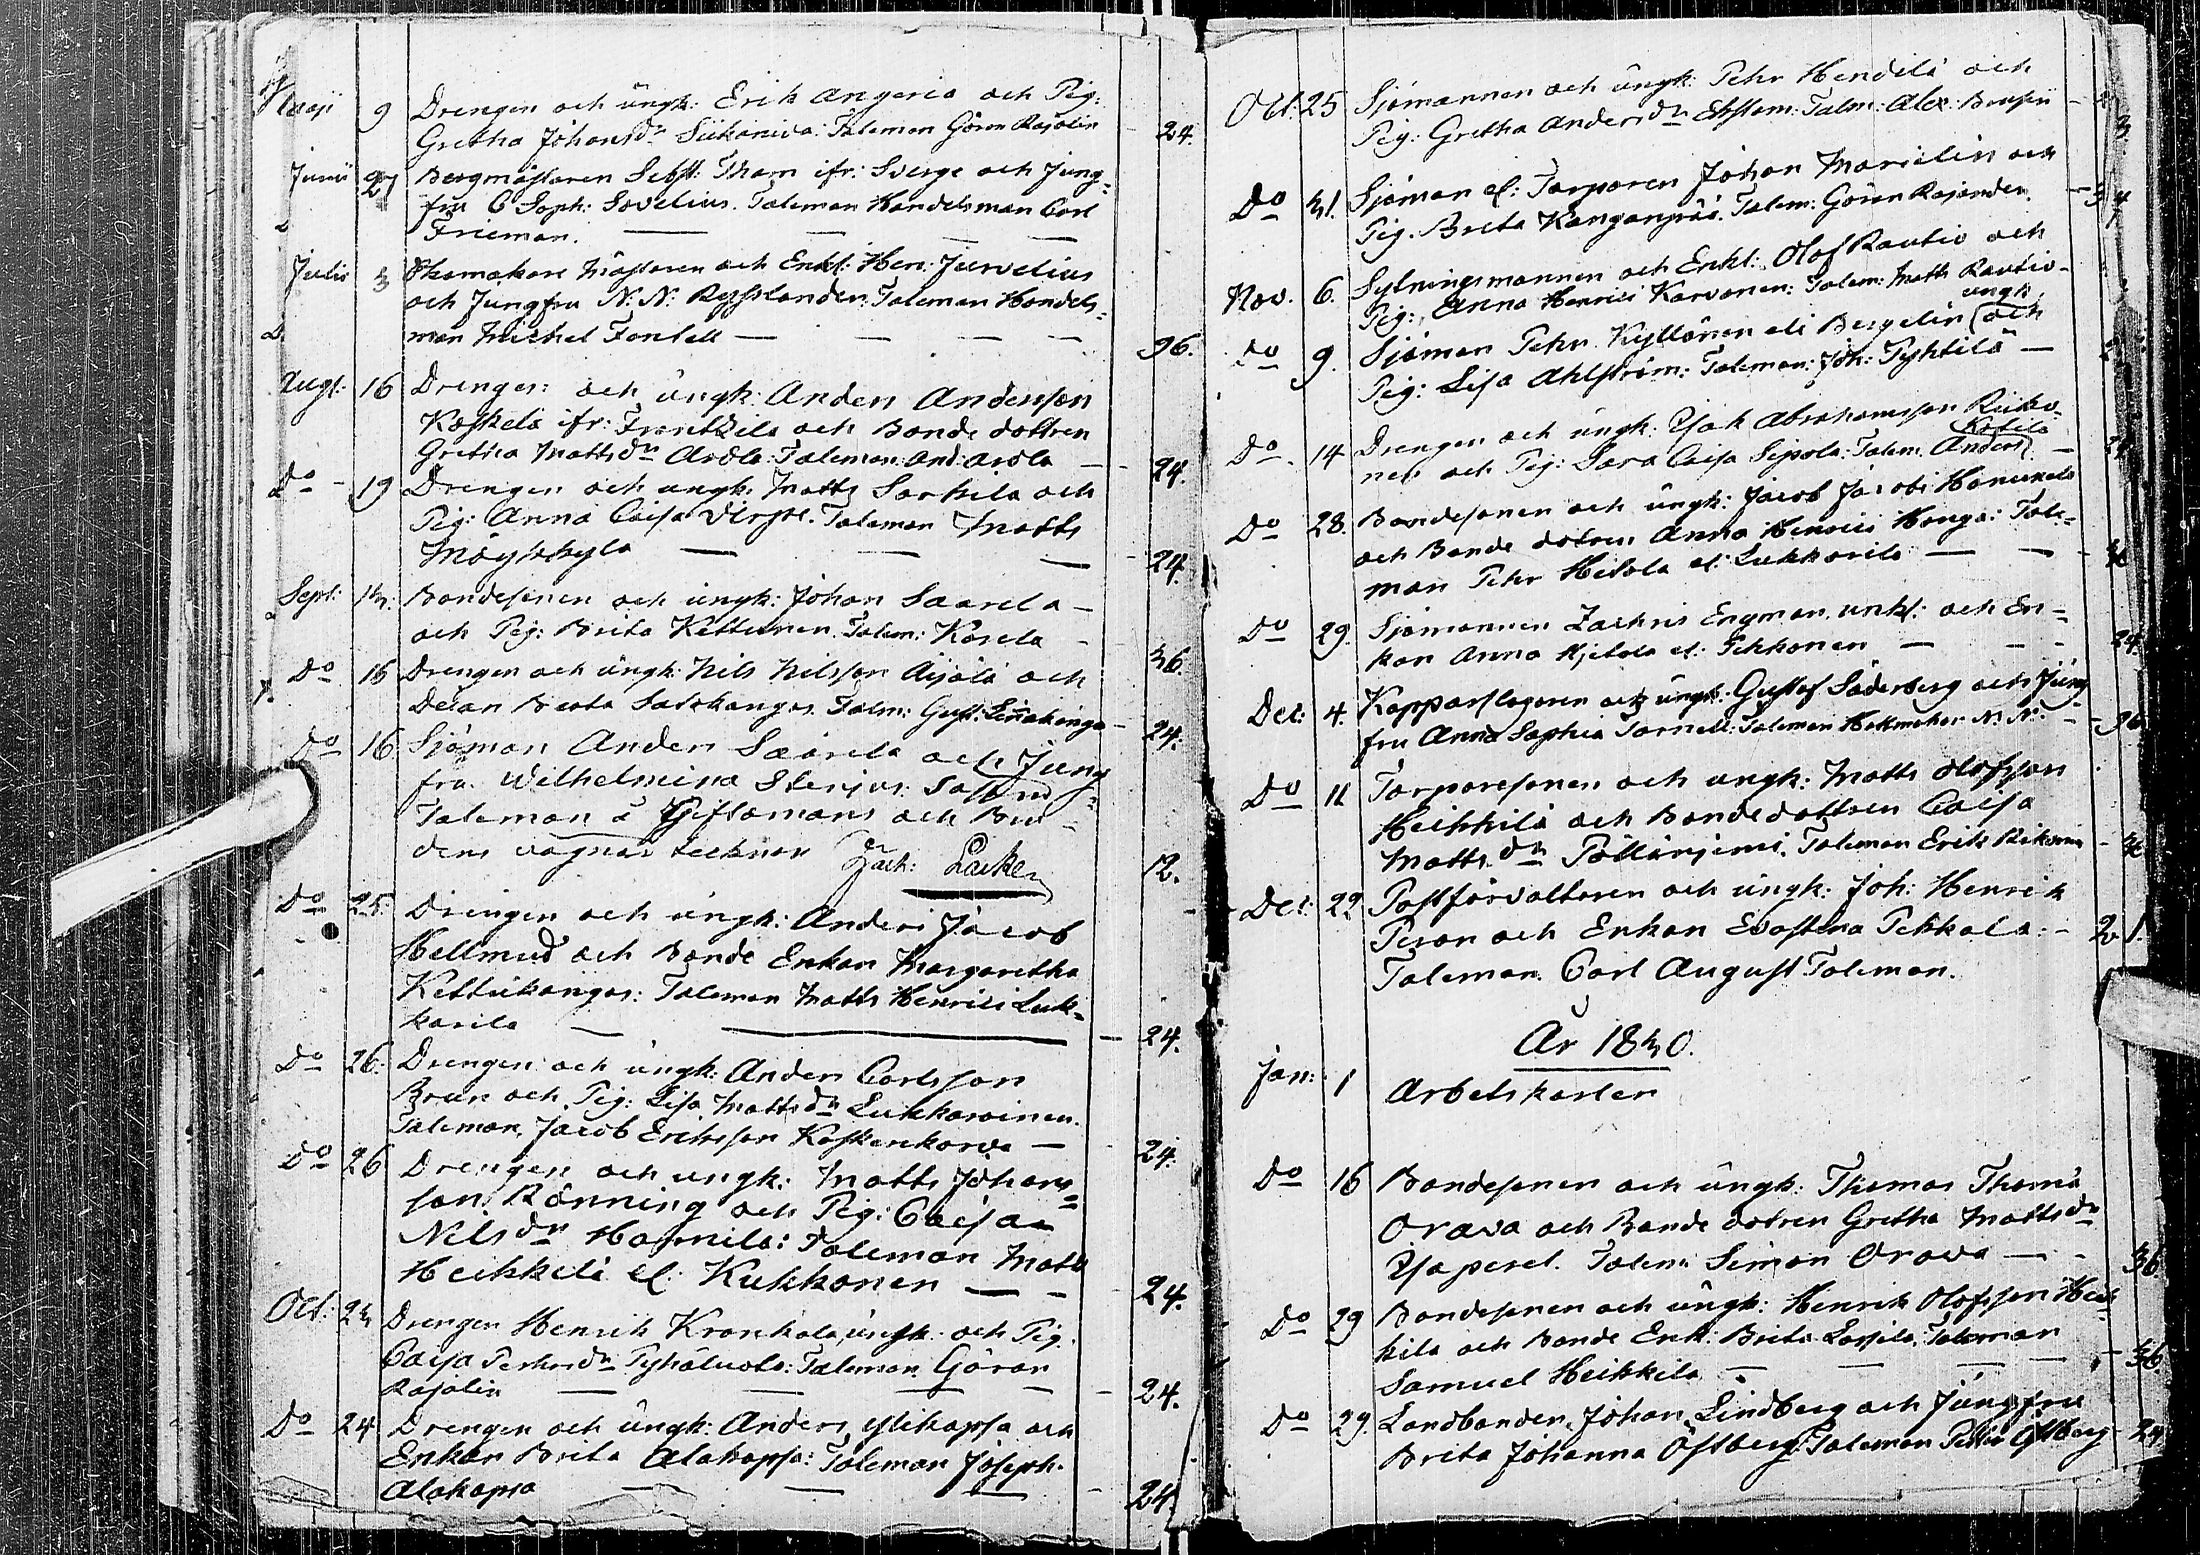 Maji 9 Drengen och ungk: Erik Angeria och Pig:
Gretha Johansdr Siikaniva: Taleman Göran Rajalin — 24.
Junii 27 Bergmästaren Sebst: Tham ifr: Sverge och Jung=
fru C Soph: Sovelius. Taleman Handelsman Carl
Frieman. — — —
Julii 3 Skomakare Mästaren och Enkl: Hen: Jurvelius
och Jungfru N: N: Rysslander. Taleman Handels=
man Michel Fontell — — — — 96.
Augst: 16 Drengen och ungk: Anders Andersson
Koskela ifr: Frantzila och Bonde dottren
Gretha Mattsdr Ardla: Taleman And: Ardla — 24.
Do 19 Drengen och ungk: Matts Sarkela och
Pig: Anna Caisa Taleman Matts
Möykkylä — — — 24.
Sept: 13. Bondesonen och ungk: Johan Saarela —
och Pig: Brita Kettunen. Talem: Karela — 36.
Do 16 Drengen och ungk: Nils Nilsson Äijälä och
Brita Salokangas Talm: Gust: Linakanga — 24.
Do 16. Sjöman Anders Saarela och Jung=
fru Wilhelmina
Taleman å Giftomans och Bru=
dens vägnar tecknar Zach: 12.
Do 25. Drengen och ungk: Anders Jacob
Hellmud och Bonde Enkan Margaretha
Kettukangas: Taleman Matts Henrici Luk=
karila — — — 24.
Do 26. Drengen och ungk: Anders Carlsson
Brun och Pig: Lisa Mattsdr Lukkaroinen.
Taleman Jacob Ericksson Koskenkorva — 24.
Do 26 Drengen och ungk: Matts Johans=
son Rönning och Pig: Caisa
Nilsdr Hannila: Taleman Matts
Heikkilä el: Kukkonen — — 24.
Oct: 23 Drengen Henrik Krankala, ungk: och Pig.
Caisa Pehrsdr Pyhäluoto: Taleman Göran
Rajalin — — — — 24.
Do 24. Drengen och ungk: Anders Ylikopsa och
Enkan Brita Alakopsa: Taleman Joseph
Alakopsa — — — 24.
Oct: 25 Sjömannen och ungk: Pehr Hendelä och
Pig: Gretha Andersdr Talm: Alex:
Do 31. Sjöman el: Torparen Johan Marielin och
Pig. Brita Kangaspää. Talem: Göran Rajander.
Nov. 6. Sytningsmannen och Enkl: Olof Rautio och
Pig: Anna Henrici Karvonen: Talem: Matts Rautio —
ungk
Do 9. Sjöman Pehr Kyllönen eli Bergelin och
Pig: Lisa Ahlström: Taleman: Joh: Pyhtilä —
Do 14 Drengen och ungk: Isak Abrahamsson Riiko=
nen och Pig: Sara Caisa Sipola: Talem. Anders Kotila — 24
Do 28. Bondesonen och ungk: Jacob Jacobi Hanukela
och Bonde dotren Anna Henrici Honga: Tale=
man Pehr Heilala el: Lukkarila — — 36
Do 29. Sjömannen Zachris Engman, enkl: och En=
kan Anna Hjelala el: Pekkonen — — — 24.
Dec: 4. Kopparslagaren och ungk: Gustaf Söderberg och Jung
fru Anna Sophia Tornell: Taleman Hattmakar N: N: — 96
Do 11 Torparesonen och ungk: Matts Olofsson
Heikkilä och Bondedottren Caisa
Mattsdr Pöllänjemi. Taleman Erik — 36
Dec: 22 Postförvaltaren och ungk: Joh: Henrik
Peron och Enkan Evastina Pekkala: — 2. 1.
Taleman Carl August Taleman.
År 1830.
Jan: 1 Arbetskarlen
Do 16 Bondesonen och ungk: Thomas Thomæ
Orava och Bonde dotren Gretha Mattsdr
Talem: Simon Orava — — 36.
Do 29 Bondesonen och ungk: Henrik Olofsson Heik=
kilä och Bonde Enk: Brita Lassila: Taleman
Samuel Heikkilä — — — — 36.
Do 29. Landbonden, Johan Lindberg och Jungfru
Brita Johanna Östberg: Taleman Petter Östberg — 24